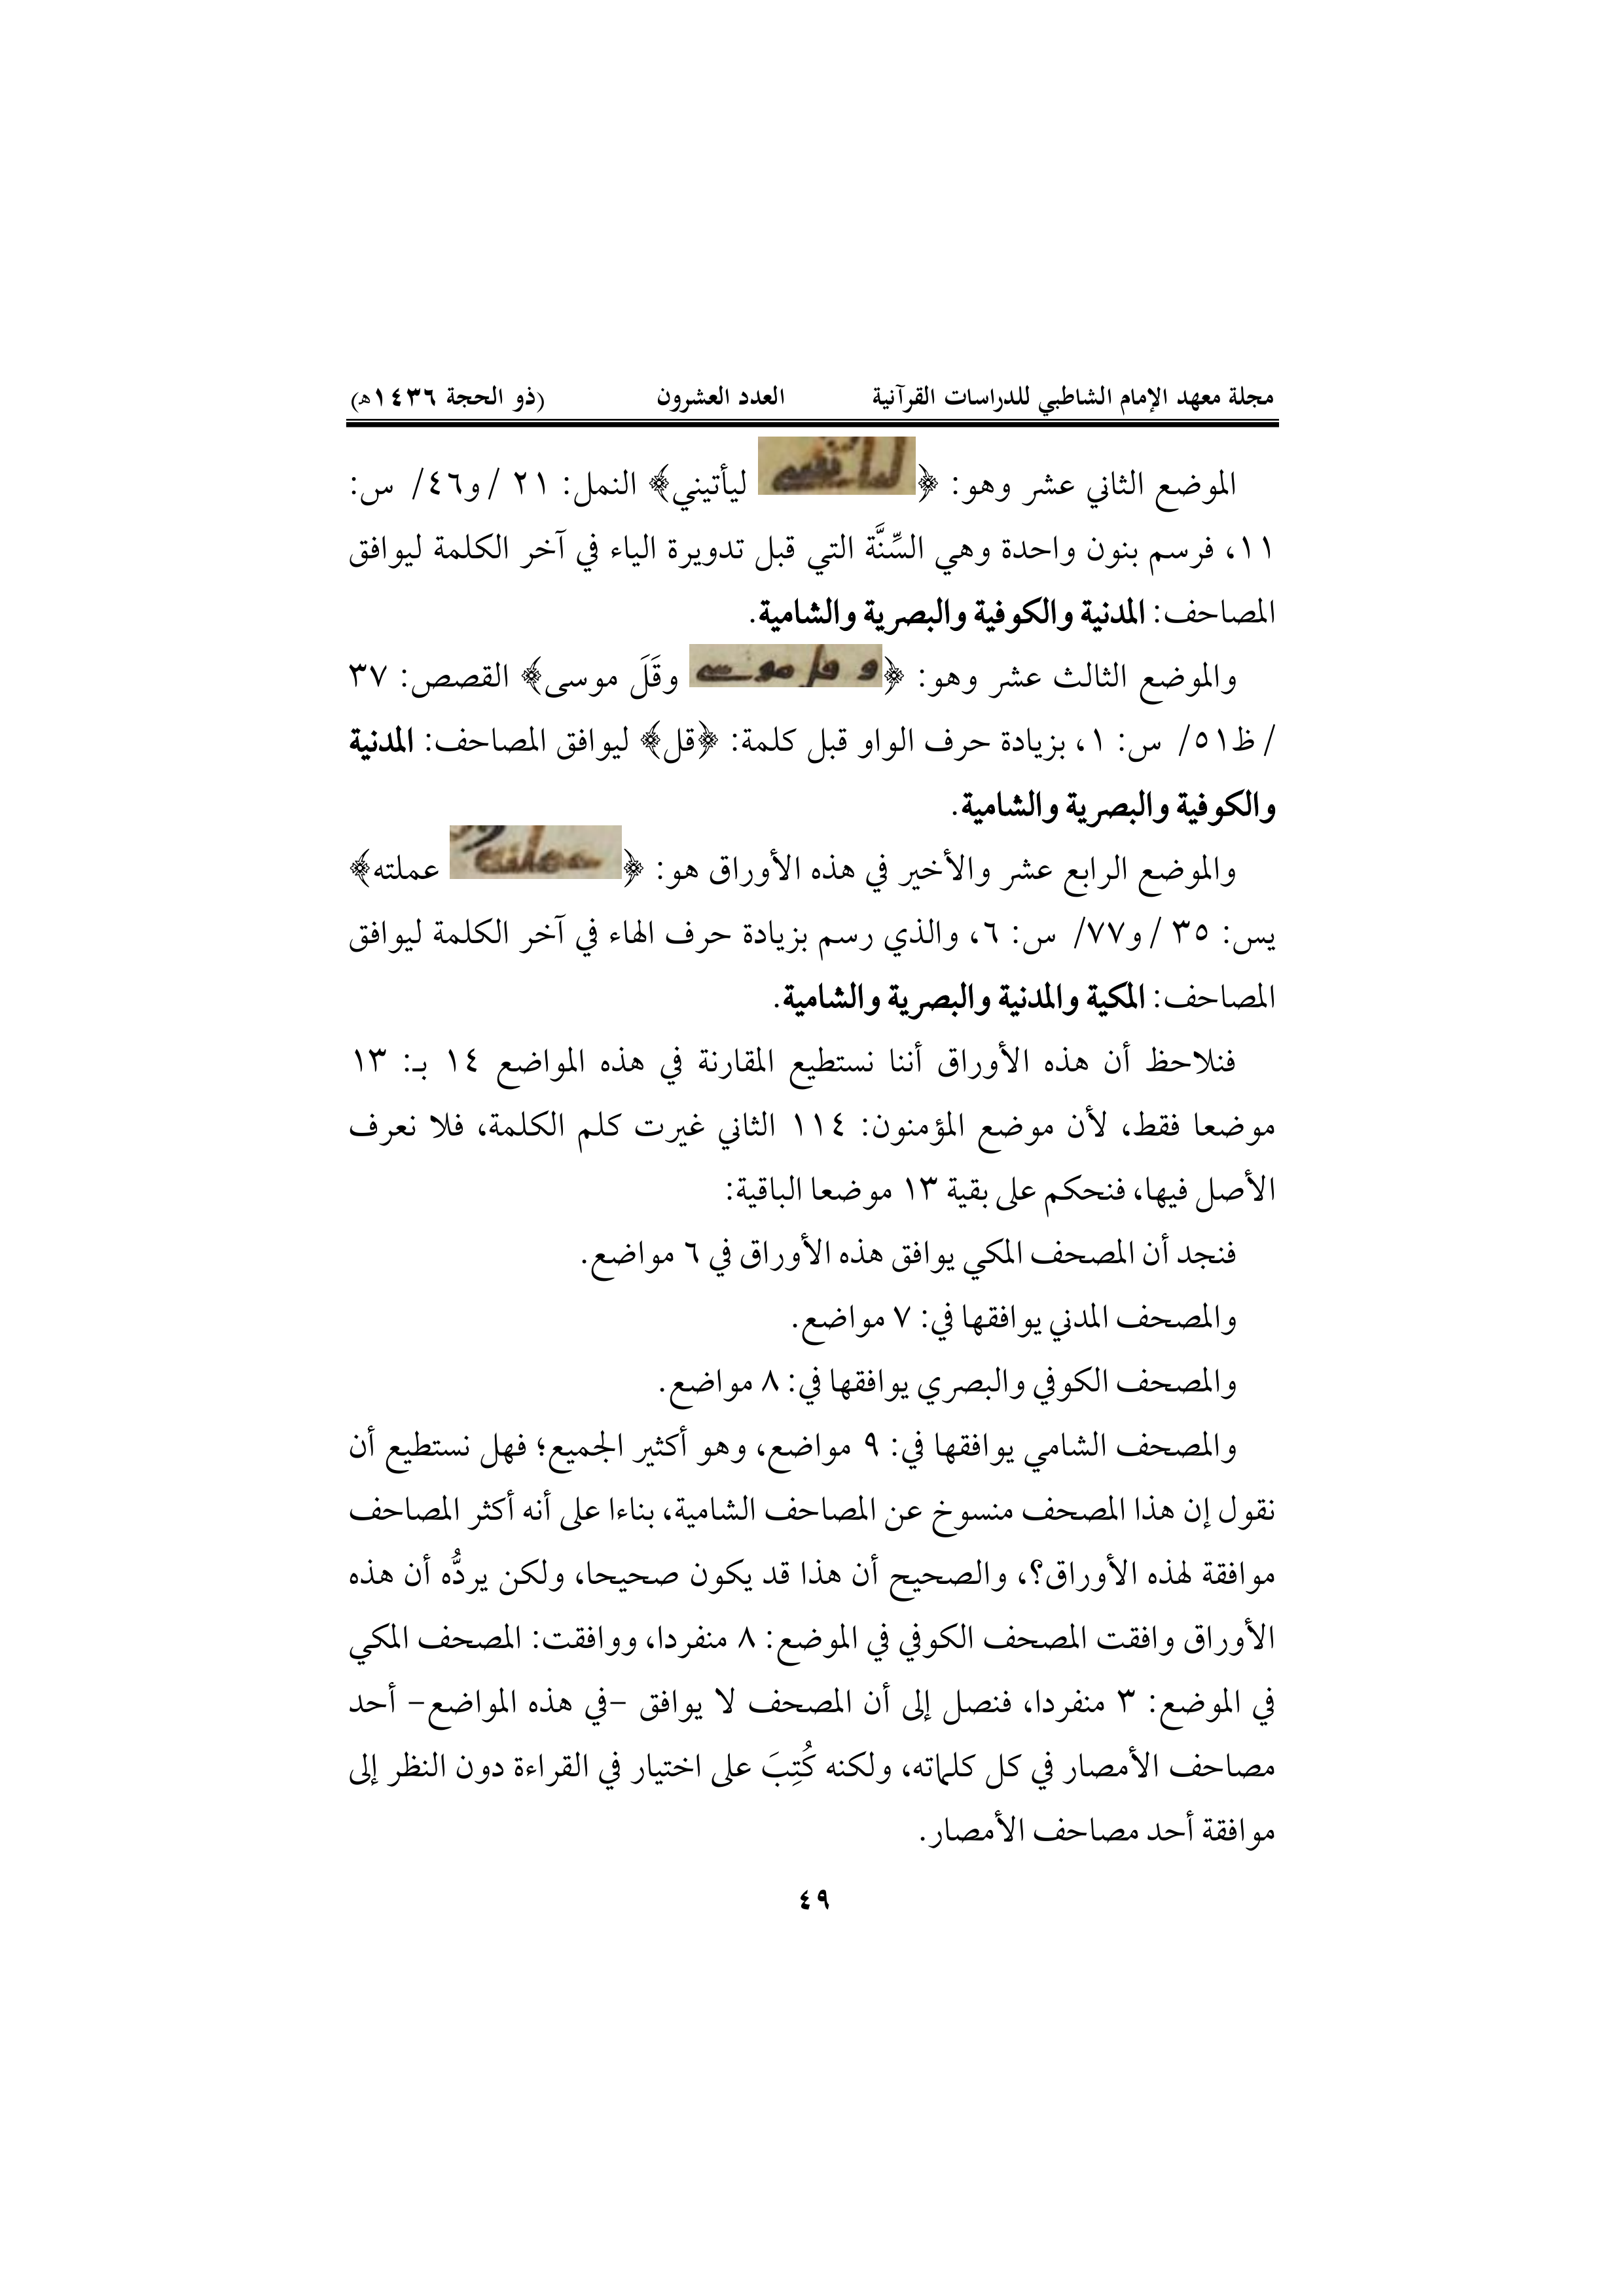 مجلة معهد الإمام الشاطبي للدراسات القرآنية العدد العشرون (ذو الحجة ١٤٣٦هـ)
الموضع الثاني عشر وهو: ﴿ ليأتيني﴾ النمل: ٢١ /و٤٦/ س:
١١، فرسم بنون واحدة وهي السِّنَّة التي قبل تدويرة الياء في آخر الكلمة ليوافق
المصاحف: المدنية والكوفية والبصرية والشامية.
والموضع الثالث عشر وهو: ﴿ وقَلَ موسى﴾ القصص: ٣٧
/ ظ٥١/ س: ١، بزيادة حرف الواو قبل كلمة: ﴿قل﴾ ليوافق المصاحف: المدنية
والكوفية والبصرية والشامية.
والموضع الرابع عشر والأخير في هذه الأوراق هو: ﴿ عملته﴾
يس: ٣٥ /و٧٧/ س: ٦، والذي رسم بزيادة حرف الهاء في آخر الكلمة ليوافق
المصاحف: المكية والمدنية والبصرية والشامية.
فنلاحظ أن هذه الأوراق أننا نستطيع المقارنة في هذه المواضع ١٤ بـ: ١٣
موضعا فقط، لأن موضع المؤمنون: ١١٤ الثاني غيرت كلم الكلمة، فلا نعرف
الأصل فيها، فنحكم على بقية ١٣ موضعا الباقية:
فنجد أن المصحف المكي يوافق هذه الأوراق في ٦ مواضع.
والمصحف المدني يوافقها في: ٧ مواضع.
والمصحف الكوفي والبصري يوافقها في: ٨ مواضع.
والمصحف الشامي يوافقها في: ٩ مواضع، وهو أكثير الجميع؛ فهل نستطيع أن
نقول إن هذا المصحف منسوخ عن المصاحف الشامية، بناءا على أنه أكثر المصاحف
موافقة لهذه الأوراق؟، والصحيح أن هذا قد يكون صحيحا، ولكن يردُّه أن هذه
الأوراق وافقت المصحف الكوفي في الموضع: ٨ منفردا، ووافقت: المصحف المكي
في الموضع: ٣ منفردا، فنصل إلى أن المصحف لا يوافق -في هذه المواضع- أحد
مصاحف الأمصار في كل كلماته، ولكنه كُتِبَ على اختيار في القراءة دون النظر إلى
موافقة أحد مصاحف الأمصار.
٤٩